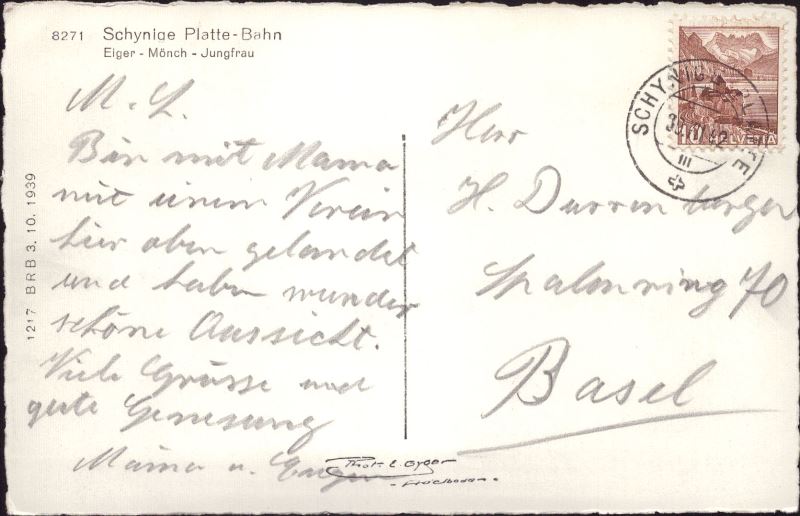 8271 Schynige Platte-Bahn
Eiger - Mönch - Jungfrau
M. L.
Bin mit Mama
mit einem Verein
hier oben gelandet
und haben wunder
schöne Aussicht.
Viele Grüsse und
gute Genesung
Mama u. Eugen
1217 BRB 3. 10. 1939
Phot. E. Gyger
Adelboden
SCHYNIGE PLATTE
III
10 HELVETIA
Herr
H. Durrenberger
Spalenring 70
Basel